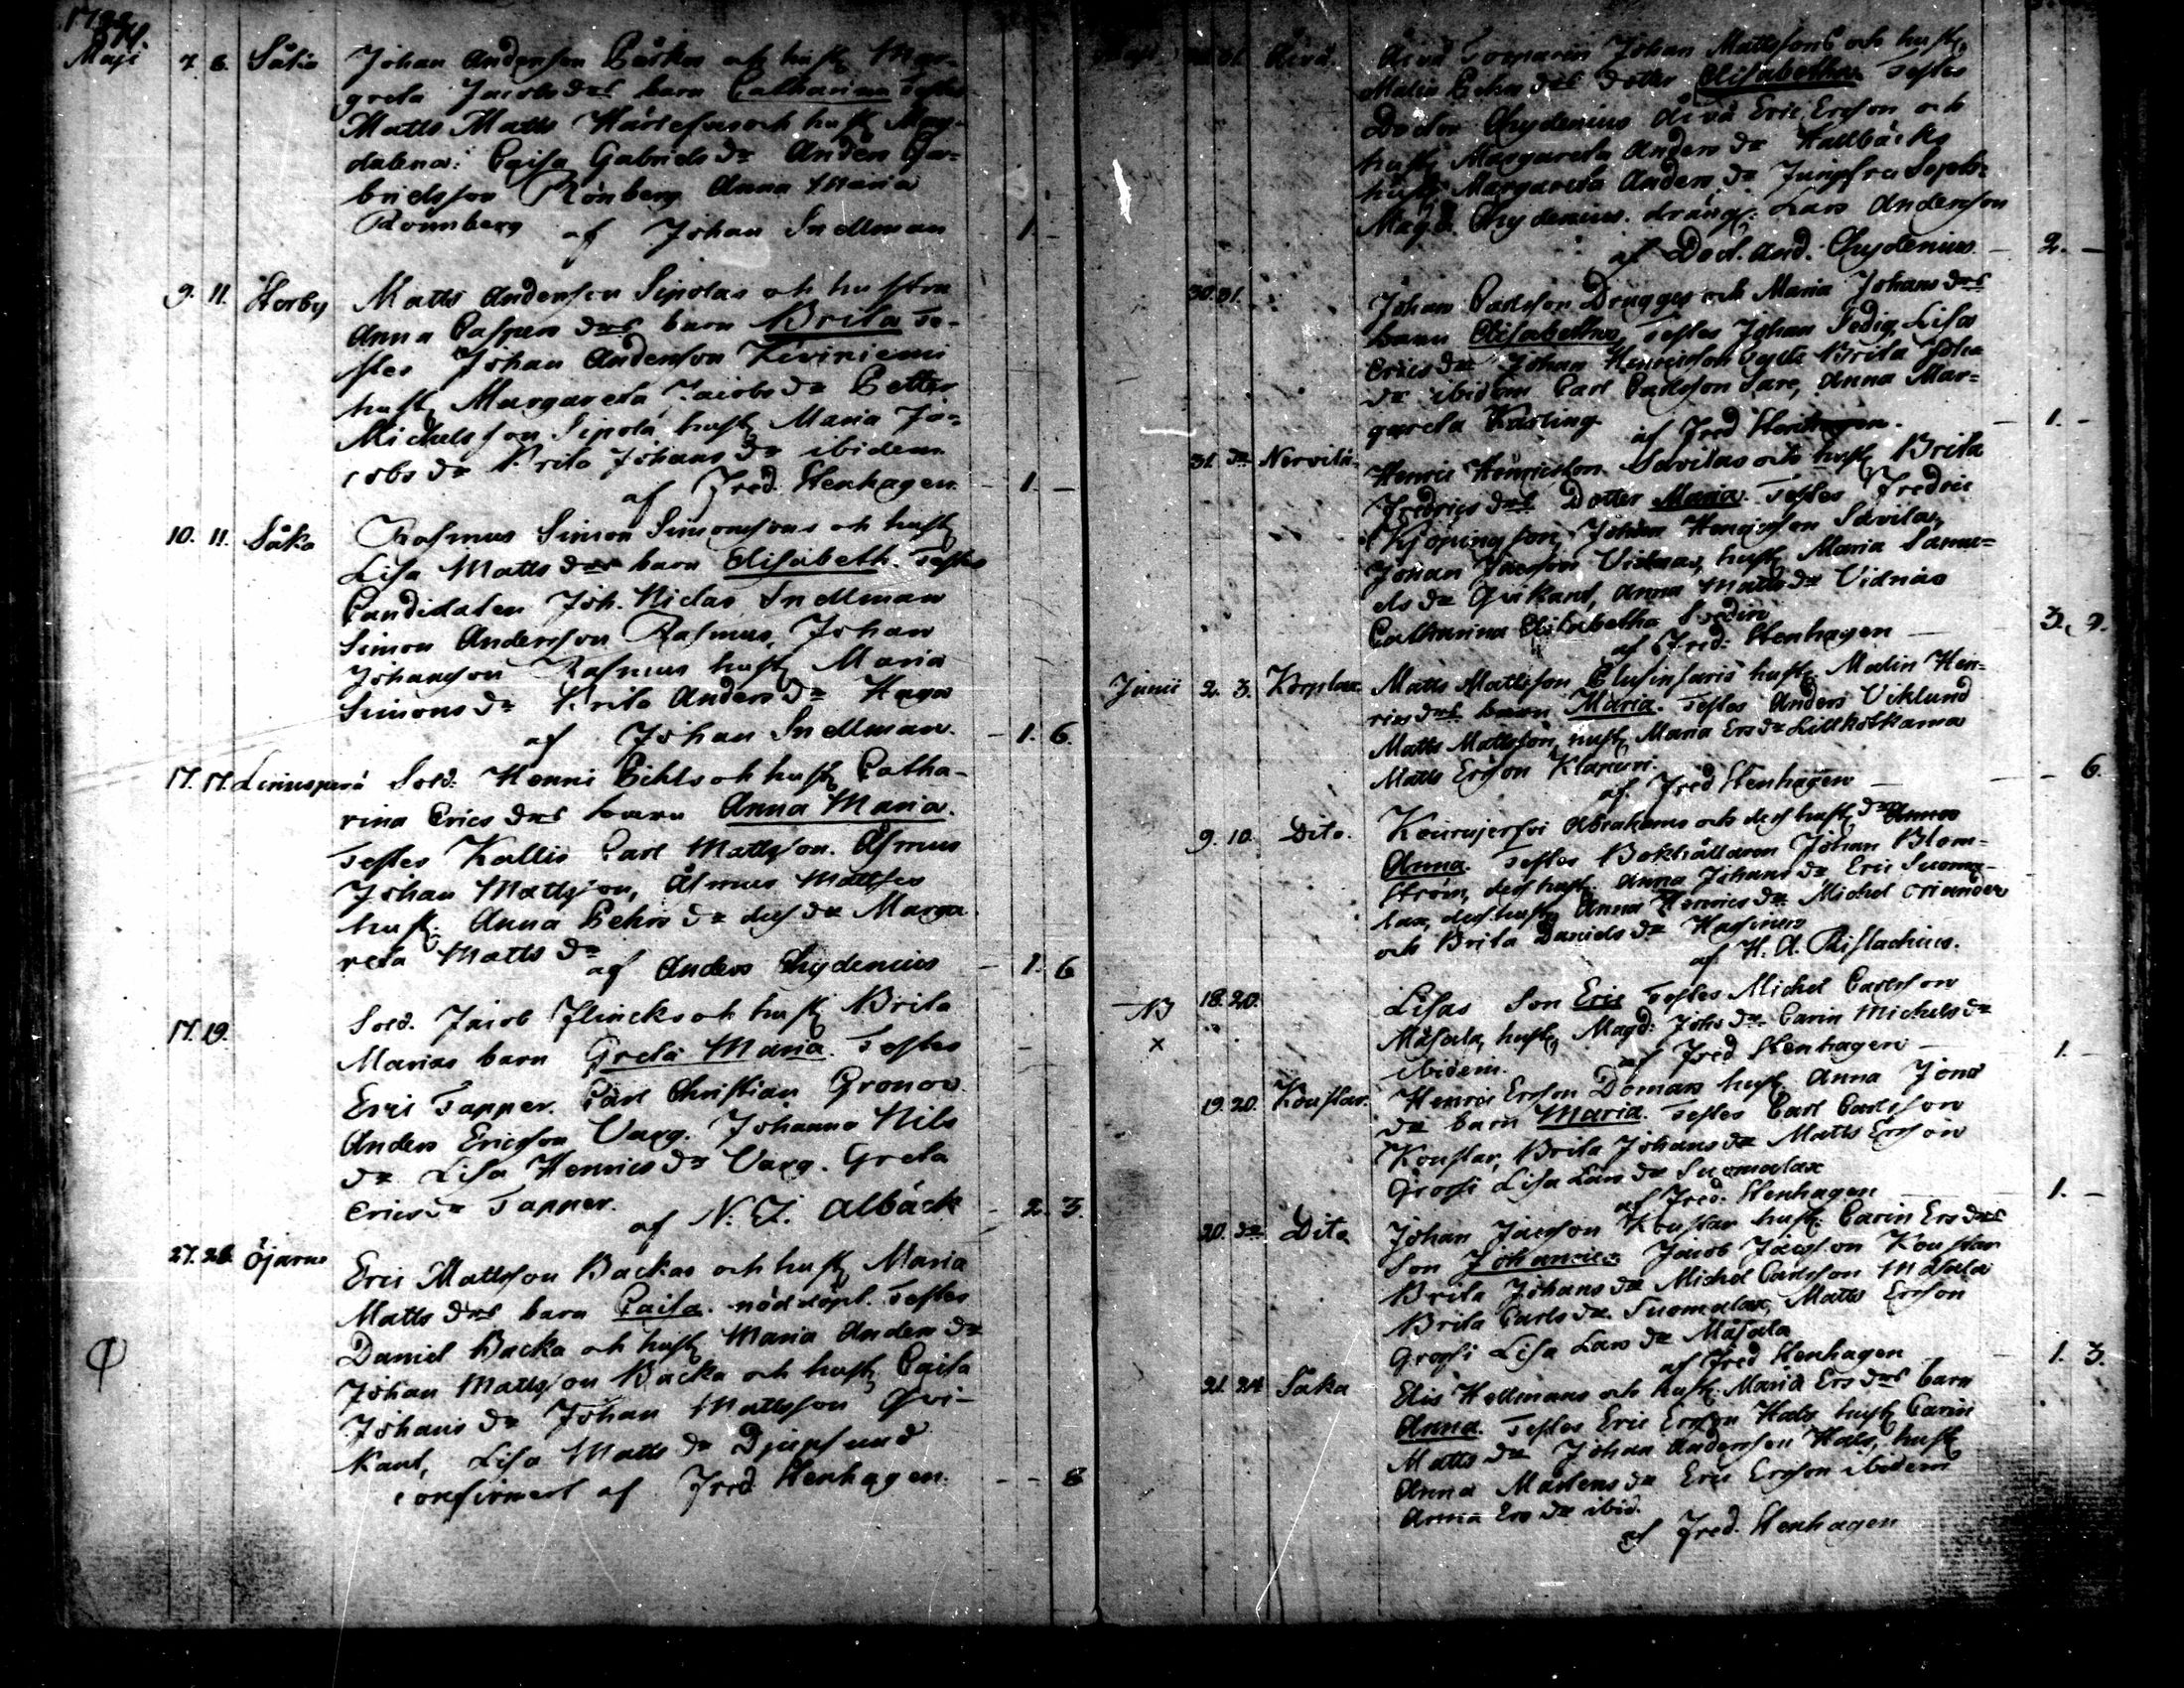 Maji 7. 8. Såka Johan Anderson Påkas och hust Mar-
greta Jacobs drs barn Catharina Testes
Matts Matts och hust Mag-
dalena: Caisa Gabriels dr Anders Ga-
brielsson Rönberg Anna Maria
Rönnberg af Johan Snellman 1 -
9. 11. Storby Matts Anderson Sipolas och hustru
Anna Caspers drs barn Brita Te-
stes Johan Anderson Liviniemi
hust Margareta Jacobs dr Petter
Michelsson Sipola hust Maria Ja-
cobs dr Brita Johans dr ibidem
af Fred. Stenhagen - 1. -
10. 11. Såka Rasmus Simon Simonssons och hust
Lisa Matts drs barn Elisabeth. Testes
Candidaten Joh. Niclas Snellman
Simon Andersson Rasmus, Johan
Johansson Rasmus hust Maria
Simons dr Brita Anders dr Haga
af Johan Snellman. - 1. 6.
17. 17. Sold. Henric Pihls och hust Catha-
rina Erics drs barn Anna Maria.
Testes Kallis Carl Mattsson. Åsmus
Johan Mattsson, Åsmus Mattses
hust. Anna Pehrs dr des dr Marga
reta Matts dr
af Anders Chydenius - 1. 6
17. 19. Sold. Jacob Flincks och hust Brita
Marias barn Greta Maria. Testes
Eric Tapper. Carl Christian Gronow
Anders Ericsson Varg. Johanna Nils
dr Lisa Henrics dr Varg. Greta
Erics dr Tapper.
af N. J. Albäck - 2. 3.
27. 28. Öjarne Eric Mattsson Backas och hust Maria
Matts drs barn Caisa. nöddöpt. Testes
Daniel Backa och hust Maria Anders dr
Johan Mattsson Backa och hust Caisa
Johans dr Johan Mattsson Qvi-
kant, Lisa Matts dr Djupsund
confirmert af Fred. Stenhagen. - - 8
31. Åivå Åivå Johan Mattssons och hust
Malin Pehrs drs dotter Elisabetha Testes
Doctor Chydenius Åivå Eric Ersson och
hust Margareta Anders dr Hallbäcks
hust Margareta Anders dr Jungfru Soph:
Magd. Chydenius. dräng. Lars Anderson
af Doct. And. Chydenius - 2. -
30. 31. Johan Carlsson Drugges och Maria Johans drs
barn Elisabetha, Testes Johan Fedig, Lisa
Erics dr Johan Henricsson Brita Joha
dr ibidem Carl Carlsson Sare, Anna Mar-
gareta Karling af Fred Stenhagen. - 1. -
31. dr Nervilä Henric Henricsson Savilas och hust Brita
Fredrics drs Dotter Maria. Testes Fredric
Kjöpingson, Johan Henricsson Savila,
Johan Jacsson Vidnas, hust Maria Samu-
els dr Qvikant, Anna Matts dr Vidnäs
Catharina Elisabetha Sedin
af Fred: Stenhagen - 3. 9.
Junii 2. 3. Korplax Matts Mattsson hust. Malin Hen-
rics drs barn Maria. Testes Anders Viklund
Matts Mattsson, hust Maria Ers dr Lillkotkama
Matts Ersson Klapuri.
af Fred Stenhagen - - 6.
9. 10. Dito. Abrahams och des hust dr Annas
Anna. Testes Bokhållaren Johan Blom-
ström, des hust. Anna Johans dr Eric Suoma-
lax, des hust Anna Henrics dr Michel Oriander
och Brita Daniels dr
af H. A. Ristachius.
NB 18. 20. Lisas Son Eric Testes Michel Carlsson
x Måsala, hust Magd: Johs dr Carin Michels dr
ibidem. af Fred Stenhagen - 1. -
19. 20. Kouslax. Henric Ersson Domars hust. Anna Jons
dr barn Maria. Testes Carl Carlsson
Kouslax, Brita Johans dr Matts Ersson
Grossi Lisa Lars dr Suomalax
af Fred. Stenhagen - 1. -
20. dr Dito Johan Jacsson Kouslax hust. Carin Ers drs
Son Johannes Jacob Jacsson Kouslax
Brita Johans dr Michel Carlsson Måsala
Brita Carls dr Suomalax, Matts Ersson
Grossi Lisa Lars dr Måsala
af Fred Stenhagen - 1. 3.
21. 24 Såka Elis Hellmans och hust Maria Ers drs barn
Anna. Testes Eric Ersson Hals hust Carin
Matts dr Johan Andersson Hals, hust
Anna Mårtens dr Eric Ersson ibidem
Anna Ers dr ibid.
af Fred. Stenhagen